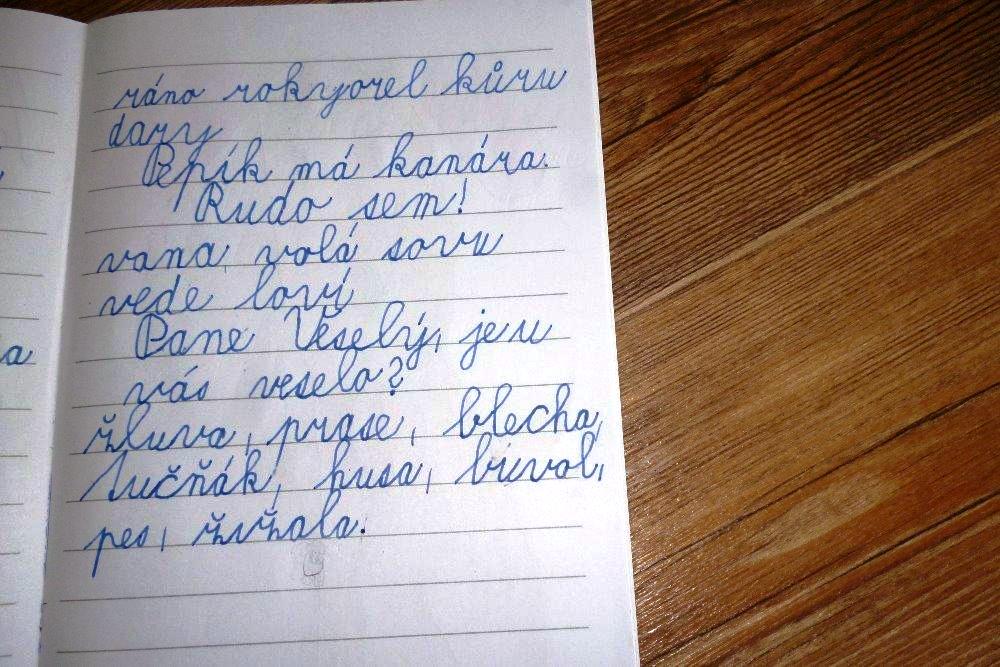 ráno roky orel kůru
dary
Pepík má kanára.
Rudo sem!
vana, volá sovu
vede loví
Pane Veselý, je u
vás veselo?
žluva, prase, blecha,
tučňák, husa, buvol,
pes, žížala.
a